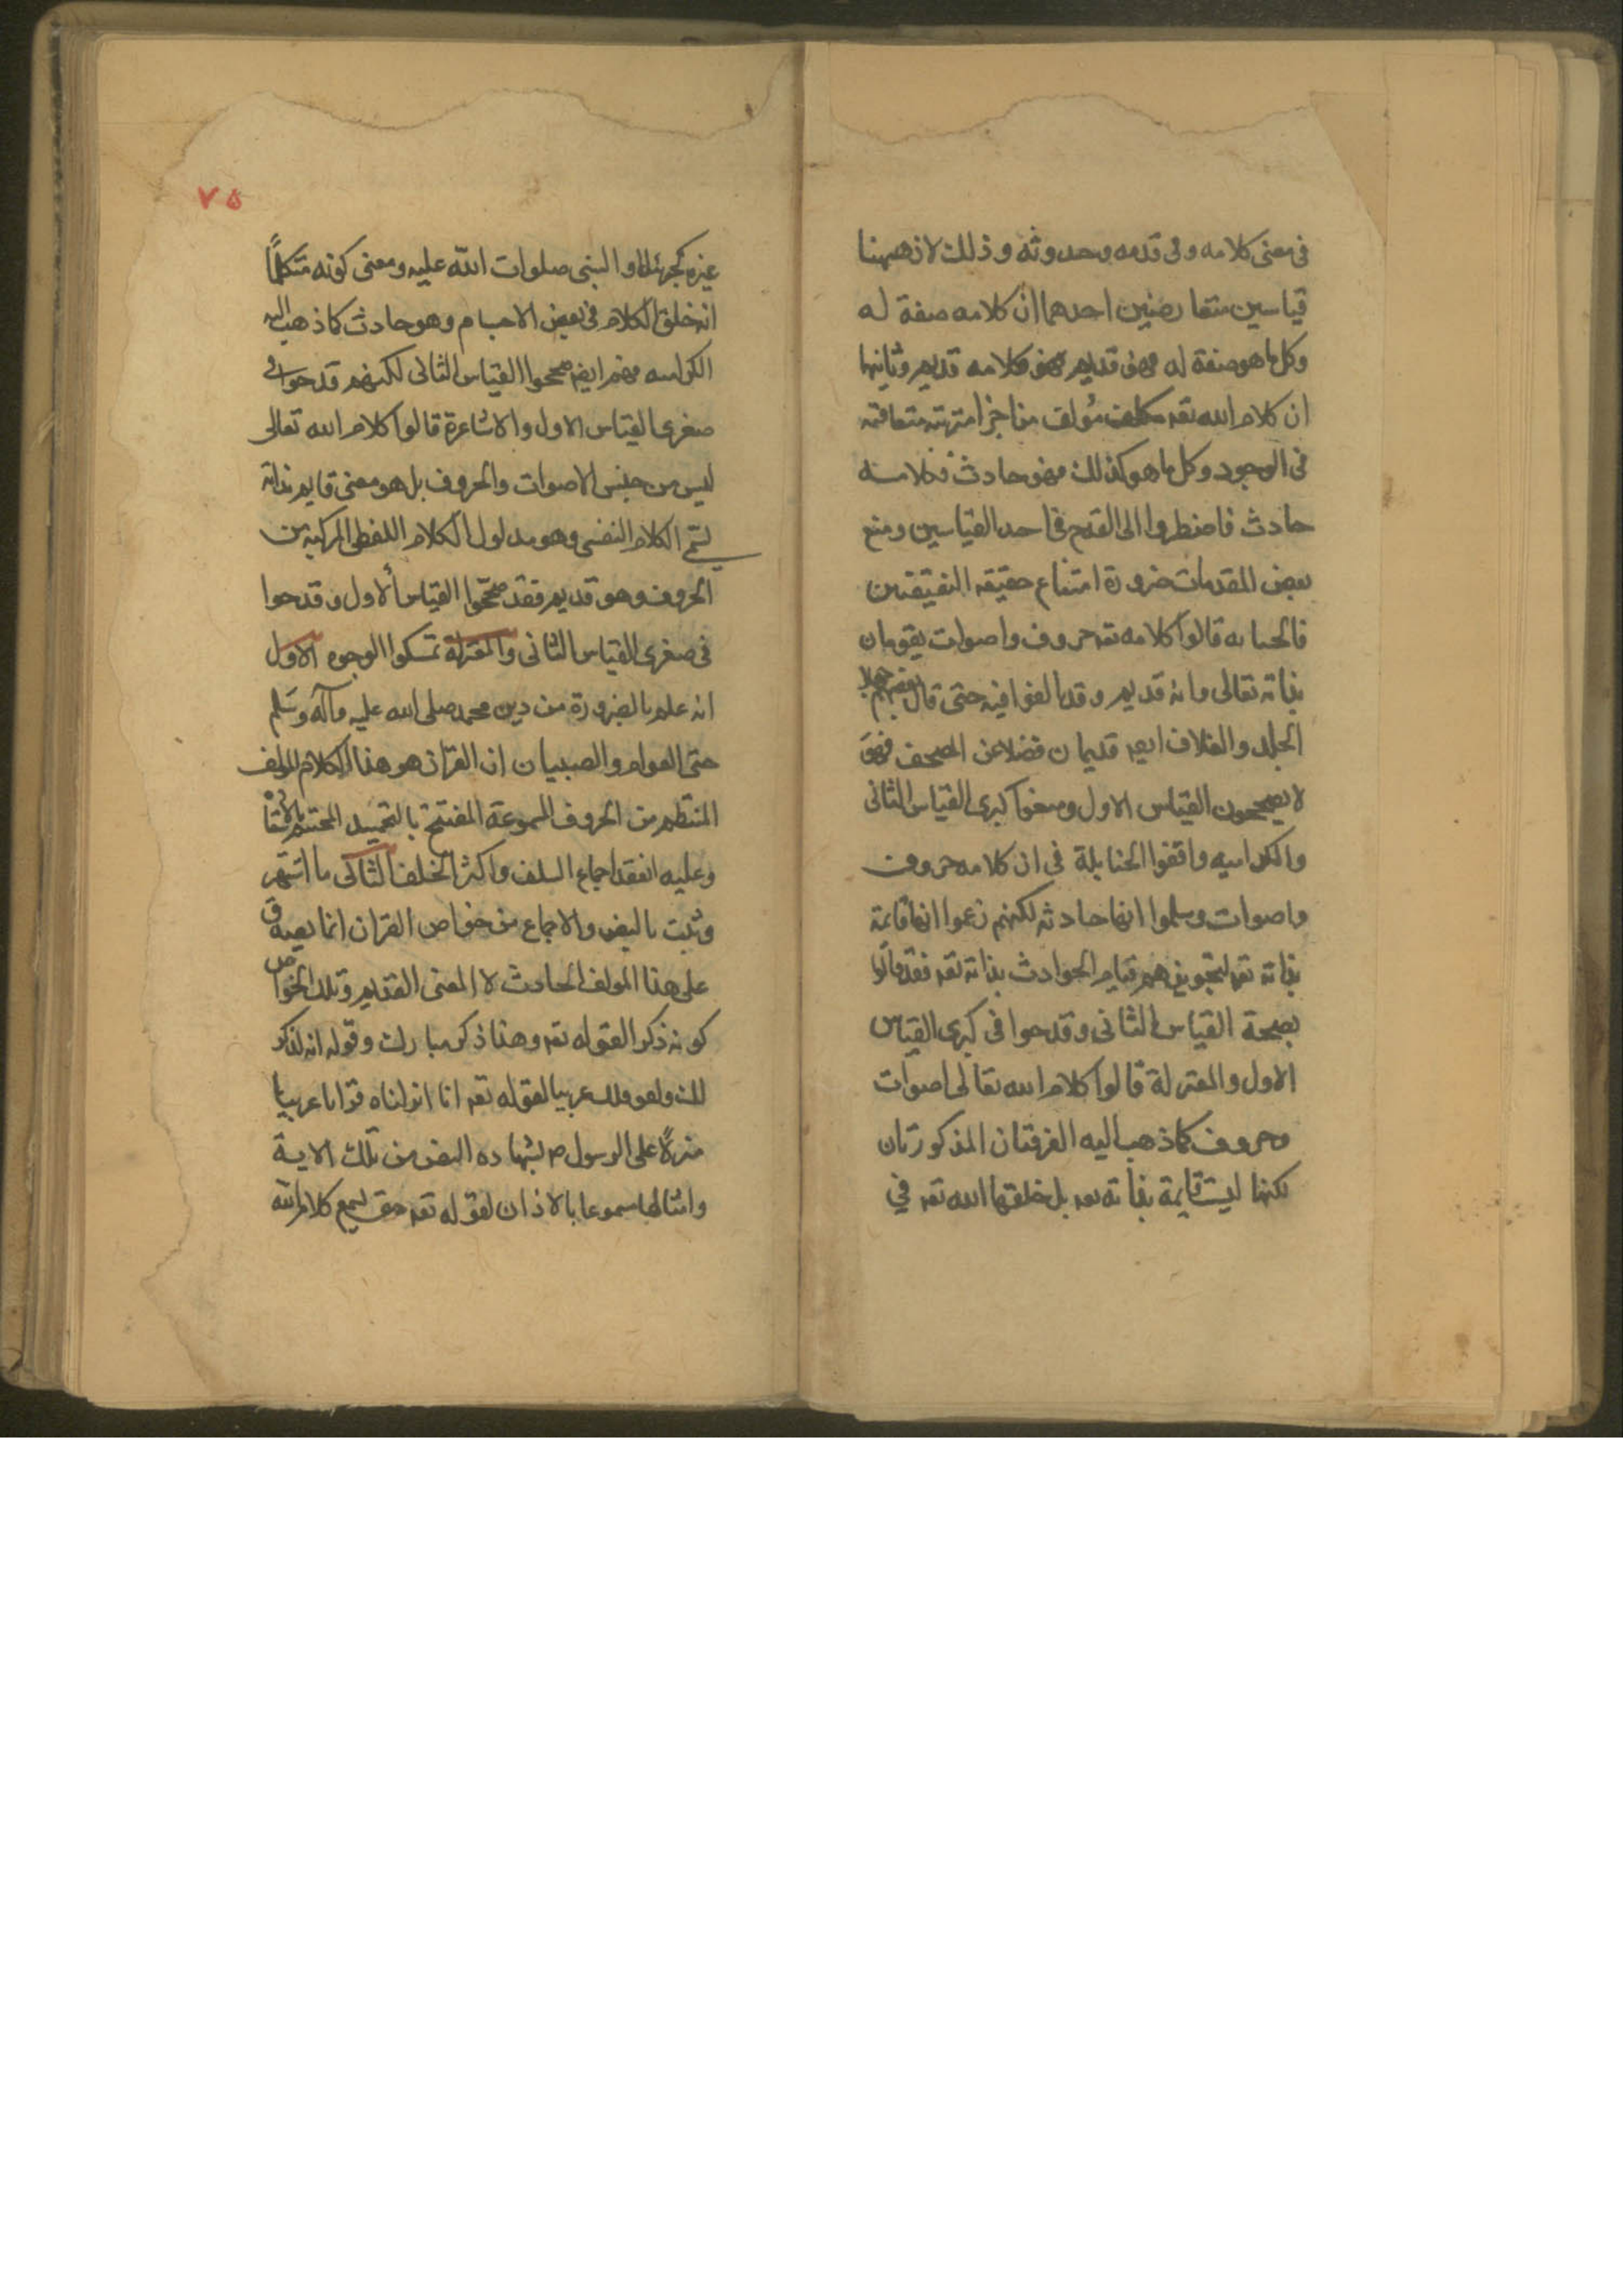 فى معنى كلامه وفى قدمه وحدوثه وذلك لان ههنا
قياسين متعارضين احدهما ان كلامه صفة له
وكل ما هو صفة له فهو قديم فكلامه قديم وثانيها
ان كلام الله تعه مؤلف من اجزا مترتبة متعاقبة
فى الوجود وكل ما هو كذلك فهو حادث فكلامه
حادث فاضطروا الى القدح فى احد القياسين ومنع
بعض المقدمات ضرورة امتناع حقيقه النقيضين
فالحنابله قالوا كلامه تعه حروف واصوات يقومان
بذاته تعالى وانه قديم وقد بالغوا فيه حتى قال بعضهم جهلا
الجلد والغلاف ايضه قديمان فضلا عن المصحف فهو
لا يصححون القياس الاول ومنعوا كبرى القياس الثانى
والكراميه وافقوا الحنابلة فى ان كلامه حروف
واصوات وسلموا انها حادثه لكنهم زعموا انها قائمة
بذاته تعه لتجويزهم قيام الحوادث بذاته تعه فقد قالوا
بصحة القياس الثانى وقدحوا فى كبرى القياس
الاول والمعتزلة قالوا كلام الله تعالى اصوات
وحروف كما ذهب اليه الفرقتان المذكورتان
لكنها ليست قايمة بذاته تعه بل خلقها الله تعه في
٧٥
غيره كجبرئيل او النبى صلوات الله عليه ومعنى كونه متكلمًا
انه خلق الكلام فى بعض الاجسام وهو حادث كما ذهب اليه
الكراميه فهم ايضه صححوا القياس الثانى لكنهم قدحوا فى
صغرى القياس الاول والاشاعرة قالوا كلام الله تعالى
ليس من جنس الاصوات والحروف بل هو معنى قايم بذاته
يسمى الكلام النفسى وهو مدلول الكلام اللفظى المركب من
الحروف وهو قديم فقد صححوا القياس الاول وقدحوا
فى صغرى القياس الثانى والمعتزلة تمسكوا الوجوه الاول
انه علم بالضرورة من دين محمد صلى الله عليه وآله وسلم
حتى العوام والصبيان ان القران هو هذا الكلام المؤلف
المنتظم من الحروف المسموعة المفتتح بالتحميد المختتم بالاستعا
وعليه انعقد اجماع السلف واكثر الخلف الثانى ما اشتهر
وثبت بالنص والاجماع من خواص القران انما يصدق
على هذا المولف الحادث لا المعنى القديم وتلك الخواص
كونه ذكرا لقوله تعه وهذا ذكر مبارك وقوله انه لذكر
لك ولقومك عربيا لقوله تعه انا انزلناه قرانا عربيا
منزلًا على الرسول ص لشهاده النص من تلك الاية
وامثالها مسموعا بالاذان لقوله تعه حتى يسمع كلام الله